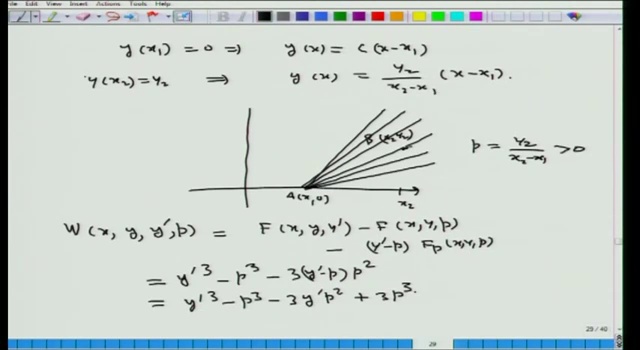 File Edit View Insert Actions Tools Help
y(x₁) = 0 ⇒ y(x) = C(x-x₁)
y(x₂) = y₂ ⇒ y(x) = y₂/(x₂-x₁) (x-x₁).
B(x₂,y₂)
p = y₂/(x₂-x₁) > 0
A(x₁,0)
x₂
W(x, y, y', p) = F(x, y, y') - F(x, y, p)
- (y'-p) Fp(x, y, p)
= y'³ - p³ - 3(y'-p)p²
= y'³ - p³ - 3y'p² + 3p³.
29 / 40
29